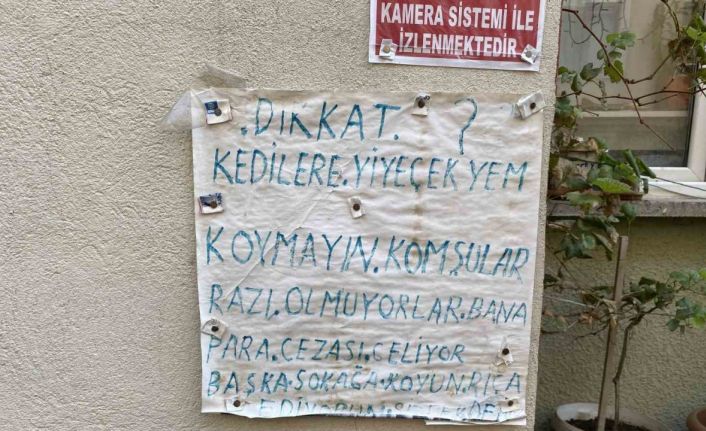 KAMERA SİSTEMİ İLE
İZLENMEKTEDİR
.DİKKAT. ?
KEDİLERE.YİYEÇEK YEM
KOYMAYIN.KOMŞULAR
RAZI.OLMUYORLAR.BANA
PARA.CEZASI.GELİYOR
BAŞKA.SOKAĞA.KOYUN.RİÇA
EDİYORUM